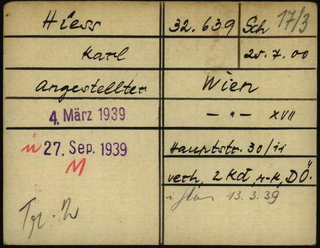 Hiess
32.639 Sch 17/3
Karl
25.7.00
Angestellter
Wien
4. März 1939
— " — XVII
27. Sep. 1939
Hauptstr. 30/11
M
verh, 2 Kd, r-k, DÖ.
13.3.39